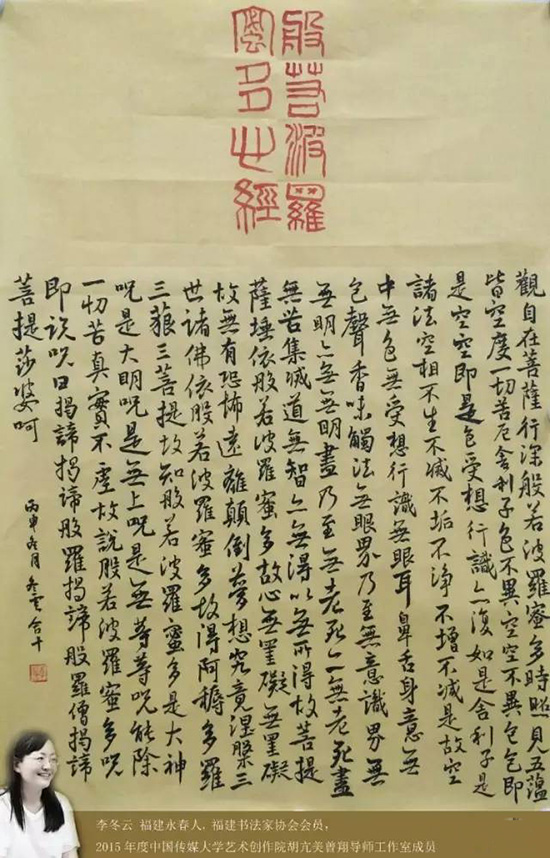 般若波羅
蜜多心經
觀自在菩薩行深般若波羅蜜多時照見五蘊
皆空度一切苦厄舍利子色不異空空不異色色即
是空空即是色受想行識亦復如是舍利子是
諸法空相不生不滅不垢不淨不增不減是故空
中無色無受想行識無眼耳鼻舌身意無
色聲香味觸法無眼界乃至無意識界無
無明亦無無明盡乃至無老死亦無老死盡
無苦集滅道無智亦無得以無所得故菩提
薩埵依般若波羅蜜多故心無罣礙無罣礙
故無有恐怖遠離顛倒夢想究竟涅槃三
世諸佛依般若波羅蜜多故得阿耨多羅
三藐三菩提故知般若波羅蜜多是大神
呪是大明呪是無上呪是無等等呪能除
一切苦真實不虛故說般若波羅蜜多呪
即說呪曰揭諦揭諦般羅揭諦般羅僧揭諦
菩提莎婆呵
丙申冬月冬雲合十
李冬云 福建永春人,福建书法家协会会员,
2015年度中国传媒大学艺术创作院胡亢美曾翔导师工作室成员